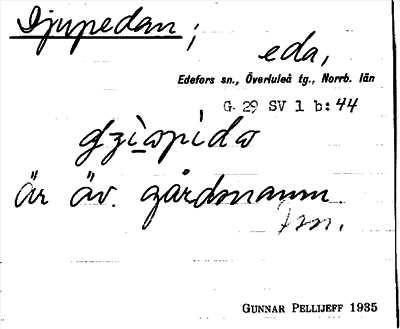 Djupedan;
eda,
Edefors sn., Överluleå tg., Norrb. län
G. 29 SV 1 b: 44
är äv. gårdnamn
Gunnar Pellijeff 1935